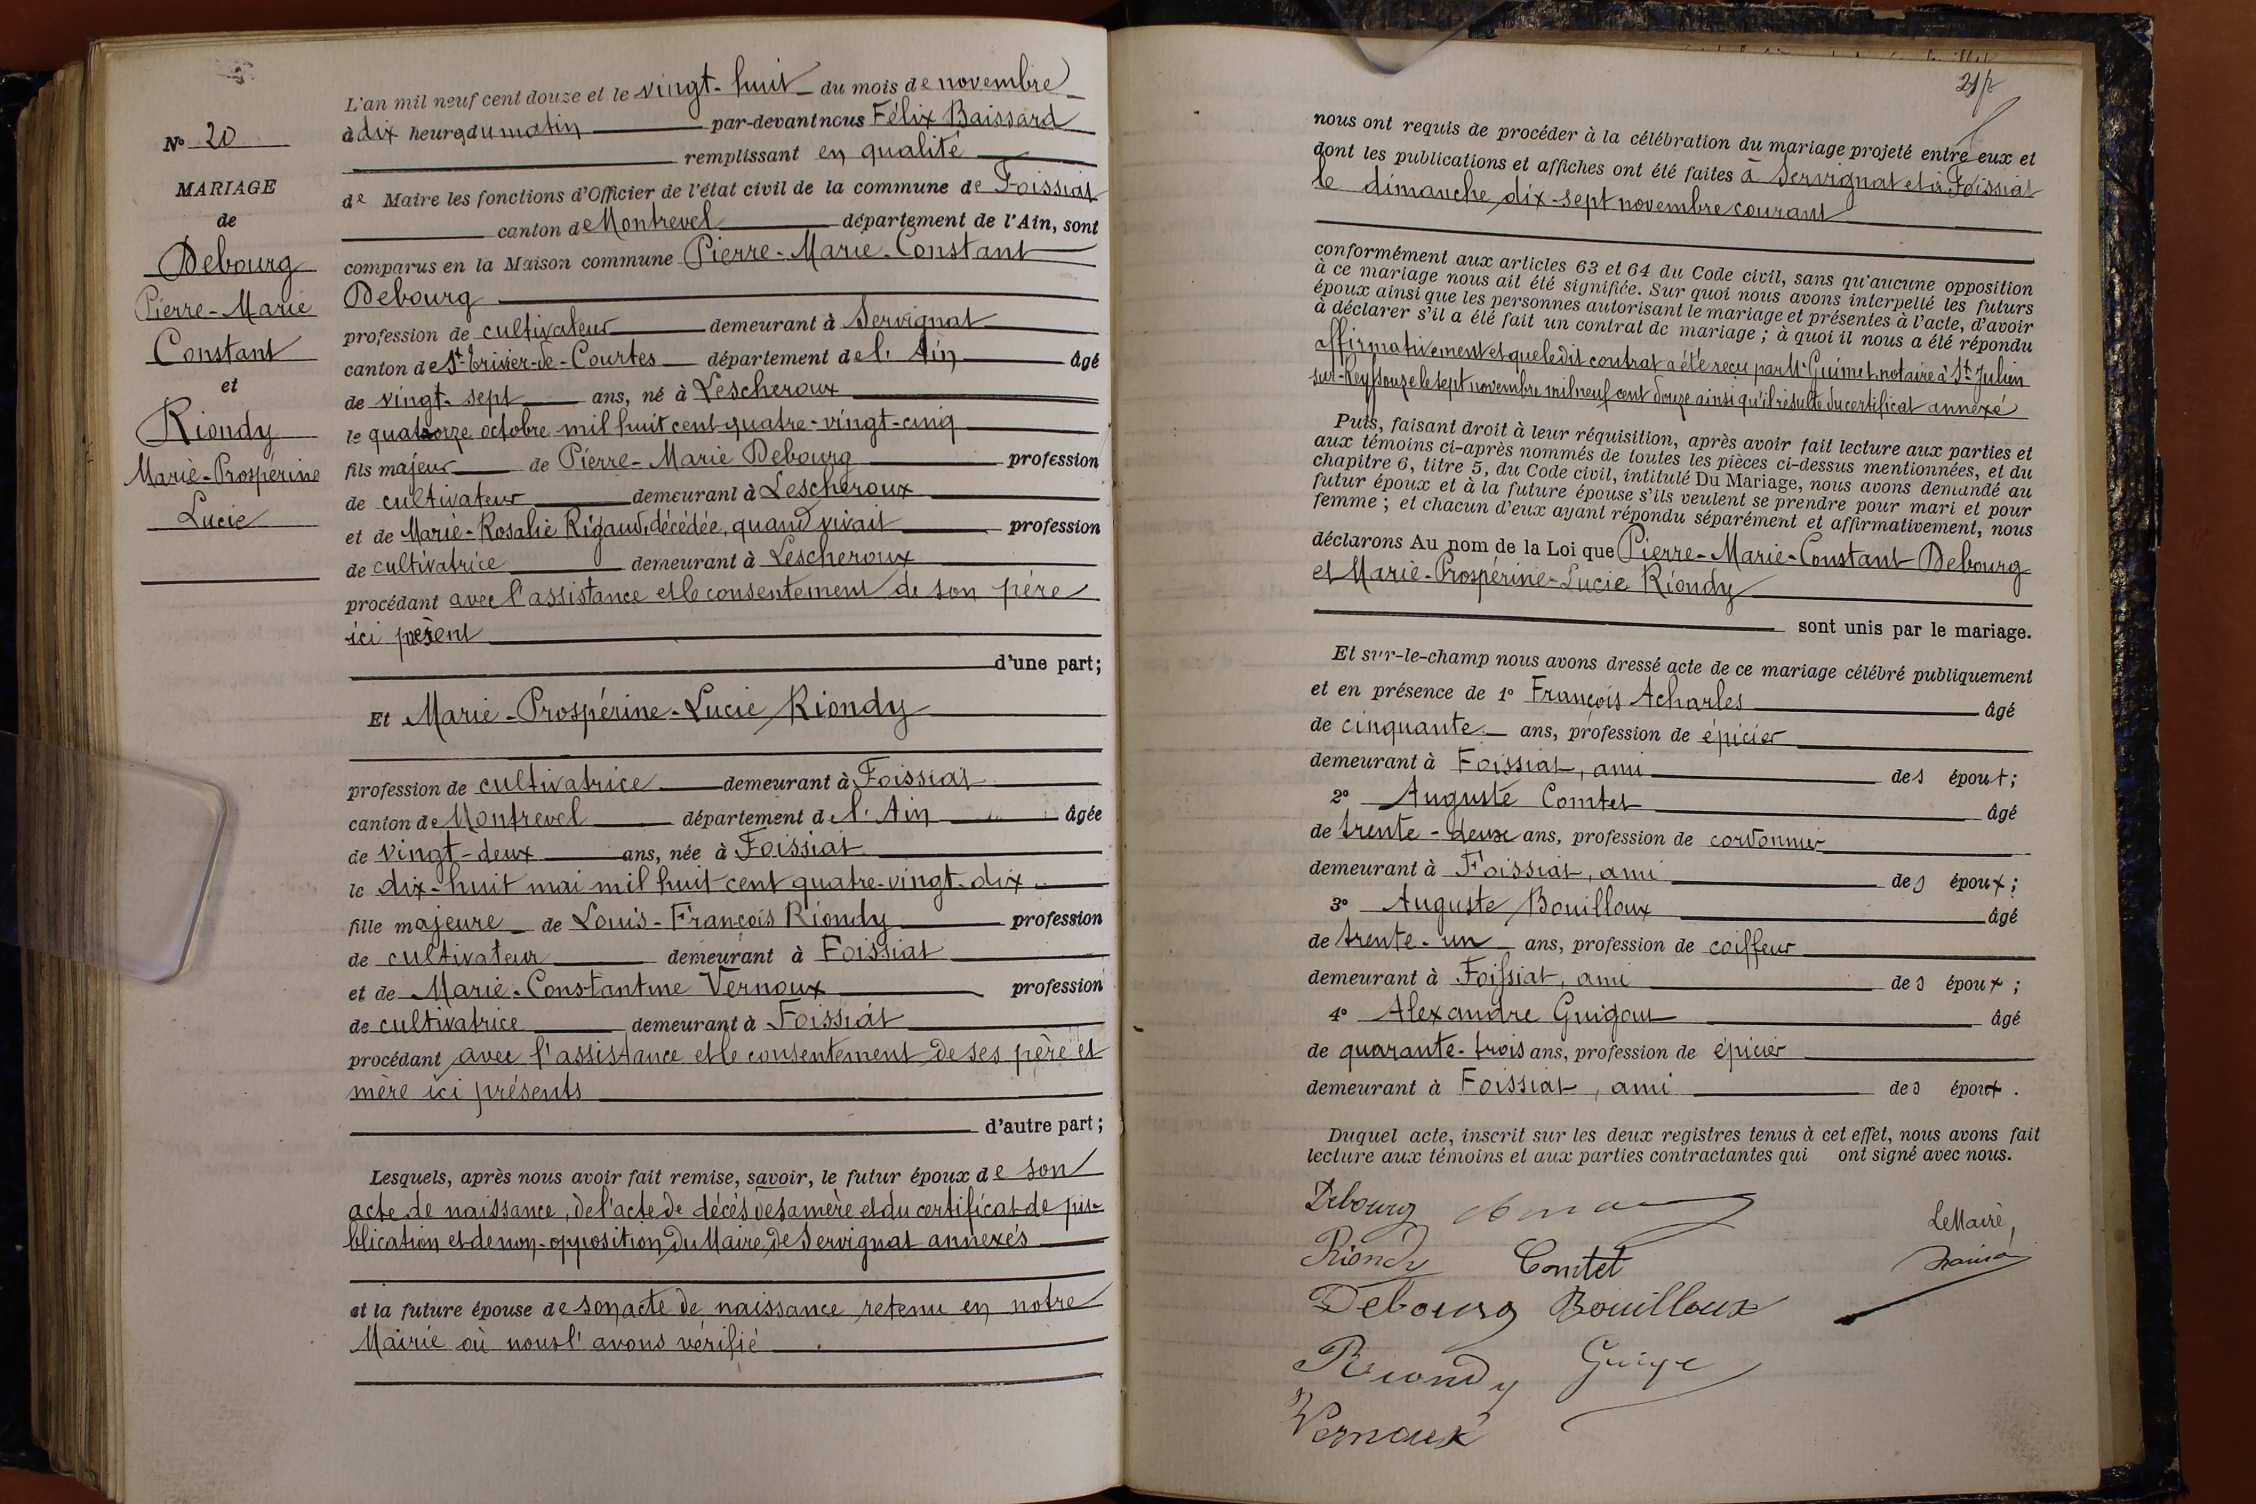 N° 20
MARIAGE
de
Debourg
Pierre-Marie
Constant
et
Riondy
Marie-Prospérine
Lucie
L'an mil neuf cent douze et le vingt-huit du mois de novembre
à dix heures du matin par-devant nous Félix Baissard
remplissant en qualité
de Maire les fonctions d'Officier de l'état civil de la commune de Foissiat
canton de Montrevel département de l'Ain, sont
comparus en la Maison commune Pierre-Marie-Constant
Debourg
profession de cultivateur demeurant à Servignat
canton de St-Trivier-de-Courtes département de l'Ain âgé
de vingt-sept ans, né à Lescheroux
le quatorze octobre mil huit cent quatre-vingt-cinq
fils majeur de Pierre-Marie Debourg profession
de cultivateur demeurant à Lescheroux
et de Marie-Rosalie Rigaud, décédée, quand vivait profession
de cultivatrice demeurant à Lescheroux
procédant avec l'assistance et le consentement de son père
ici présent
d'une part;
Et Marie-Prospérine-Lucie Riondy
profession de cultivatrice demeurant à Foissiat
canton de Montrevel département de l'Ain âgée
de vingt-deux ans, née à Foissiat
le dix-huit mai mil huit cent quatre-vingt-dix
fille majeure de Louis-François Riondy profession
de cultivateur demeurant à Foissiat
et de Marie-Constantine Vernoux profession
de cultivatrice demeurant à Foissiat
procédant avec l'assistance et le consentement de ses père et
mère ici présents
d'autre part;
Lesquels, après nous avoir fait remise, savoir, le futur époux de son
acte de naissance, de l'acte de décès de sa mère et du certificat de pu-
blication et de non-opposition du Maire de Servignat annexés
et la future épouse de son acte de naissance retenu en notre
Mairie où nous l'avons vérifié
21
nous ont requis de procéder à la célébration du mariage projeté entre eux et
dont les publications et affiches ont été faites à Servignat et à Foissiat
le dimanche dix-sept novembre courant
conformément aux articles 63 et 64 du Code civil, sans qu'aucune opposition
à ce mariage nous ait été signifiée. Sur quoi nous avons interpellé les futurs
époux ainsi que les personnes autorisant le mariage et présentes à l'acte, d'avoir
à déclarer s'il a été fait un contrat de mariage; à quoi il nous a été répondu
affirmativement et que ledit contrat a été reçu par Me Guimet, notaire à St-Julien
sur-Reyssouze le sept novembre mil neuf cent douze ainsi qu'il résulte du certificat annexé
Puis, faisant droit à leur réquisition, après avoir fait lecture aux parties et
aux témoins ci-après nommés de toutes les pièces ci-dessus mentionnées, et du
chapitre 6, titre 5, du Code civil, intitulé Du Mariage, nous avons demandé au
futur époux et à la future épouse s'ils veulent se prendre pour mari et pour
femme; et chacun d'eux ayant répondu séparément et affirmativement, nous
déclarons Au nom de la Loi que Pierre-Marie-Constant Debourg
et Marie-Prospérine-Lucie Riondy
sont unis par le mariage.
Et sur-le-champ nous avons dressé acte de ce mariage célébré publiquement
et en présence de 1° François Acharles âgé
de cinquante ans, profession de épicier
demeurant à Foissiat, ami des époux;
2° Auguste Comtet âgé
de trente-deux ans, profession de cordonnier
demeurant à Foissiat, ami des époux;
3° Auguste Bouilloux âgé
de trente-un ans, profession de coiffeur
demeurant à Foissiat, ami des époux;
4° Alexandre Guigou âgé
de quarante-trois ans, profession de épicier
demeurant à Foissiat, ami des époux.
Duquel acte, inscrit sur les deux registres tenus à cet effet, nous avons fait
lecture aux témoins et aux parties contractantes qui ont signé avec nous.
Debourg
Le Maire,
Riondy Comtet
Debourg Bouilloux
Riondy
Vernoux